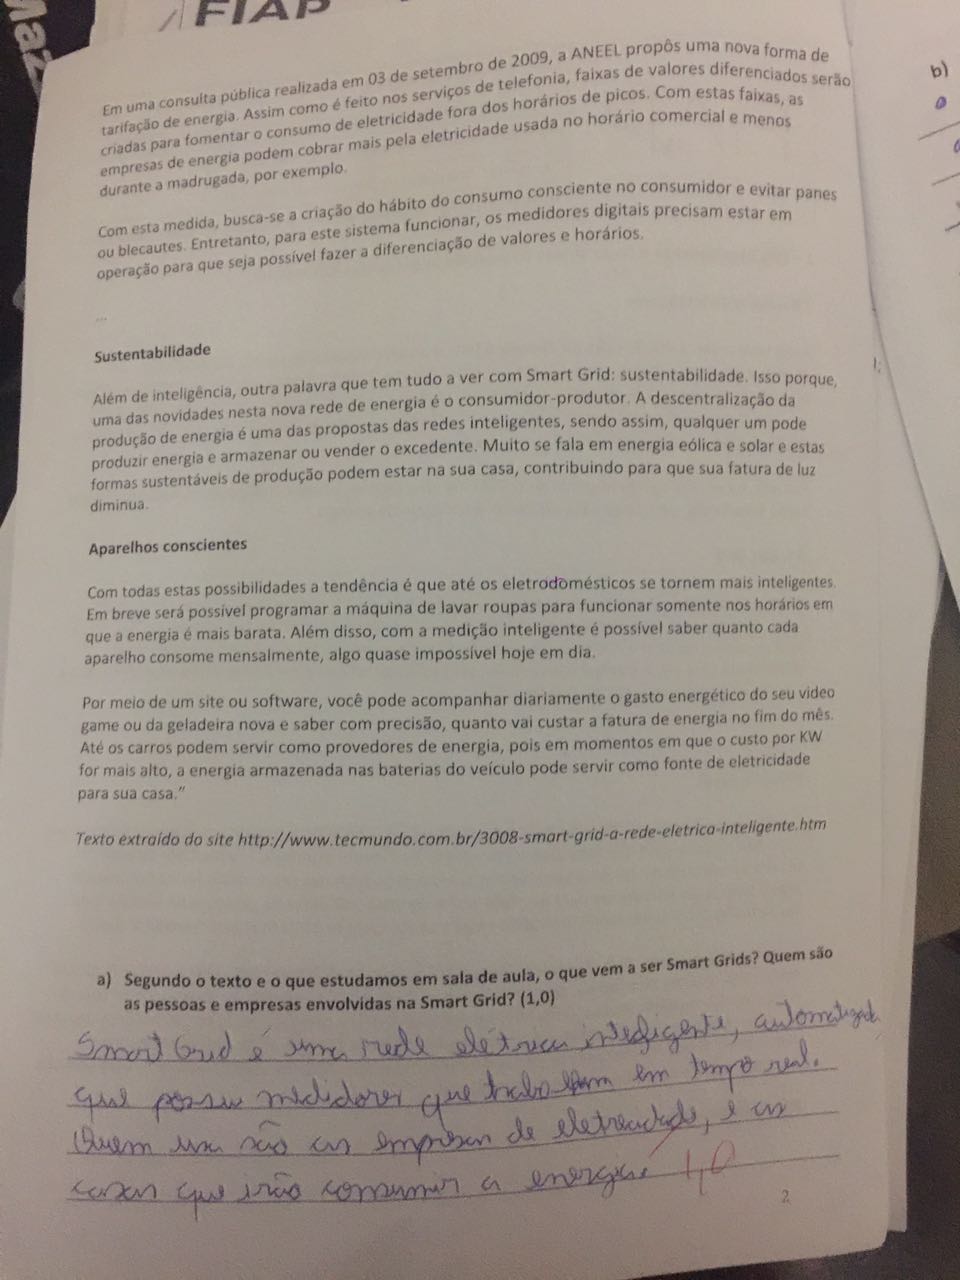 FIAP
Em uma consulta pública realizada em 03 de setembro de 2009, a ANEEL propôs uma nova forma de
tarifação de energia. Assim como é feito nos serviços de telefonia, faixas de valores diferenciados serão
criadas para fomentar o consumo de eletricidade fora dos horários de picos. Com estas faixas, as
empresas de energia podem cobrar mais pela eletricidade usada no horário comercial e menos
durante a madrugada, por exemplo.
Com esta medida, busca-se a criação do hábito do consumo consciente no consumidor e evitar panes
ou blecautes. Entretanto, para este sistema funcionar, os medidores digitais precisam estar em
operação para que seja possível fazer a diferenciação de valores e horários.
...
Sustentabilidade
Além de inteligência, outra palavra que tem tudo a ver com Smart Grid: sustentabilidade. Isso porque,
uma das novidades nesta nova rede de energia é o consumidor-produtor. A descentralização da
produção de energia é uma das propostas das redes inteligentes, sendo assim, qualquer um pode
produzir energia e armazenar ou vender o excedente. Muito se fala em energia eólica e solar e estas
formas sustentáveis de produção podem estar na sua casa, contribuindo para que sua fatura de luz
diminua.
Aparelhos conscientes
Com todas estas possibilidades a tendência é que até os eletrodomésticos se tornem mais inteligentes.
Em breve será possível programar a máquina de lavar roupas para funcionar somente nos horários em
que a energia é mais barata. Além disso, com a medição inteligente é possível saber quanto cada
aparelho consome mensalmente, algo quase impossível hoje em dia.
Por meio de um site ou software, você pode acompanhar diariamente o gasto energético do seu video
game ou da geladeira nova e saber com precisão, quanto vai custar a fatura de energia no fim do mês.
Até os carros podem servir como provedores de energia, pois em momentos em que o custo por KW
for mais alto, a energia armazenada nas baterias do veículo pode servir como fonte de eletricidade
para sua casa.”
Texto extraído do site http://www.tecmundo.com.br/3008-smart-grid-a-rede-eletrica-inteligente.htm
a) Segundo o texto e o que estudamos em sala de aula, o que vem a ser Smart Grids? Quem são
as pessoas e empresas envolvidas na Smart Grid? (1,0)
Smart Grid é uma rede elétrica inteligente, automatizada
que possui medidores que trabalham em tempo real.
Quem usa são as empresas de eletricidade, e as
casas que irão consumir a energia. 1,0
2
b)